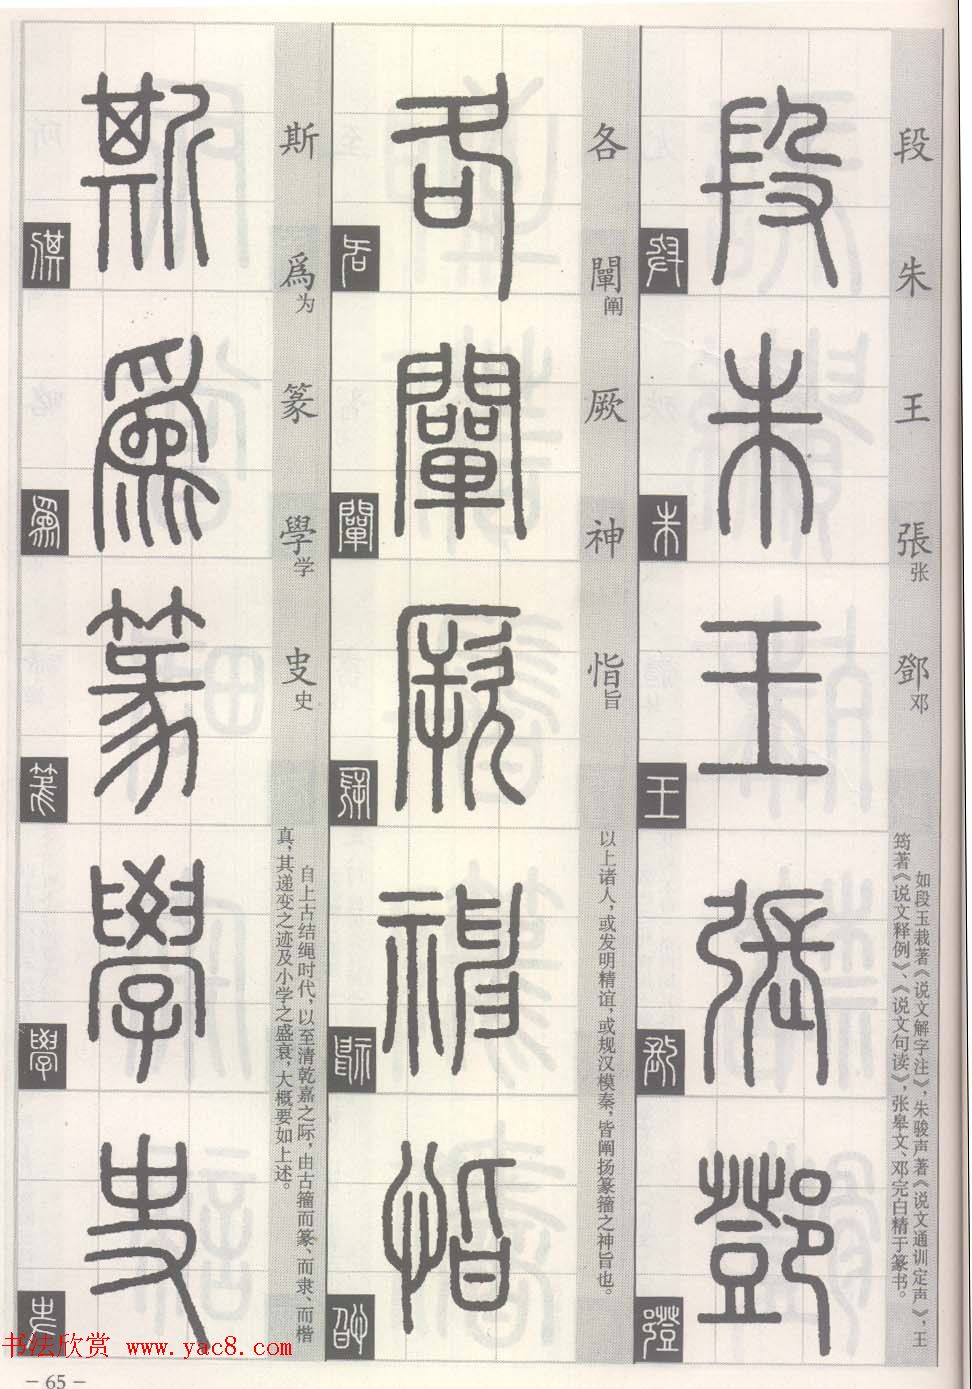 段朱王張张鄧邓
段朱王張鄧
如段玉裁著《说文解字注》，朱骏声著《说文通训定声》，王
筠著《说文释例》、《说文句读》，张皋文、邓完白精于篆书。
各闡阐厥神恉旨
各闡厥神恉
以上诸人，或发明精谊，或规汉模秦，皆阐扬篆籀之神旨也。
斯爲为篆學学史
斯爲篆學史
自上古结绳时代，以至清乾嘉之际，由古籀而篆、而隶、而楷
真，其递变之迹及小学之盛衰，大概要如上述。
书法欣赏 www.yac8.com
－65－